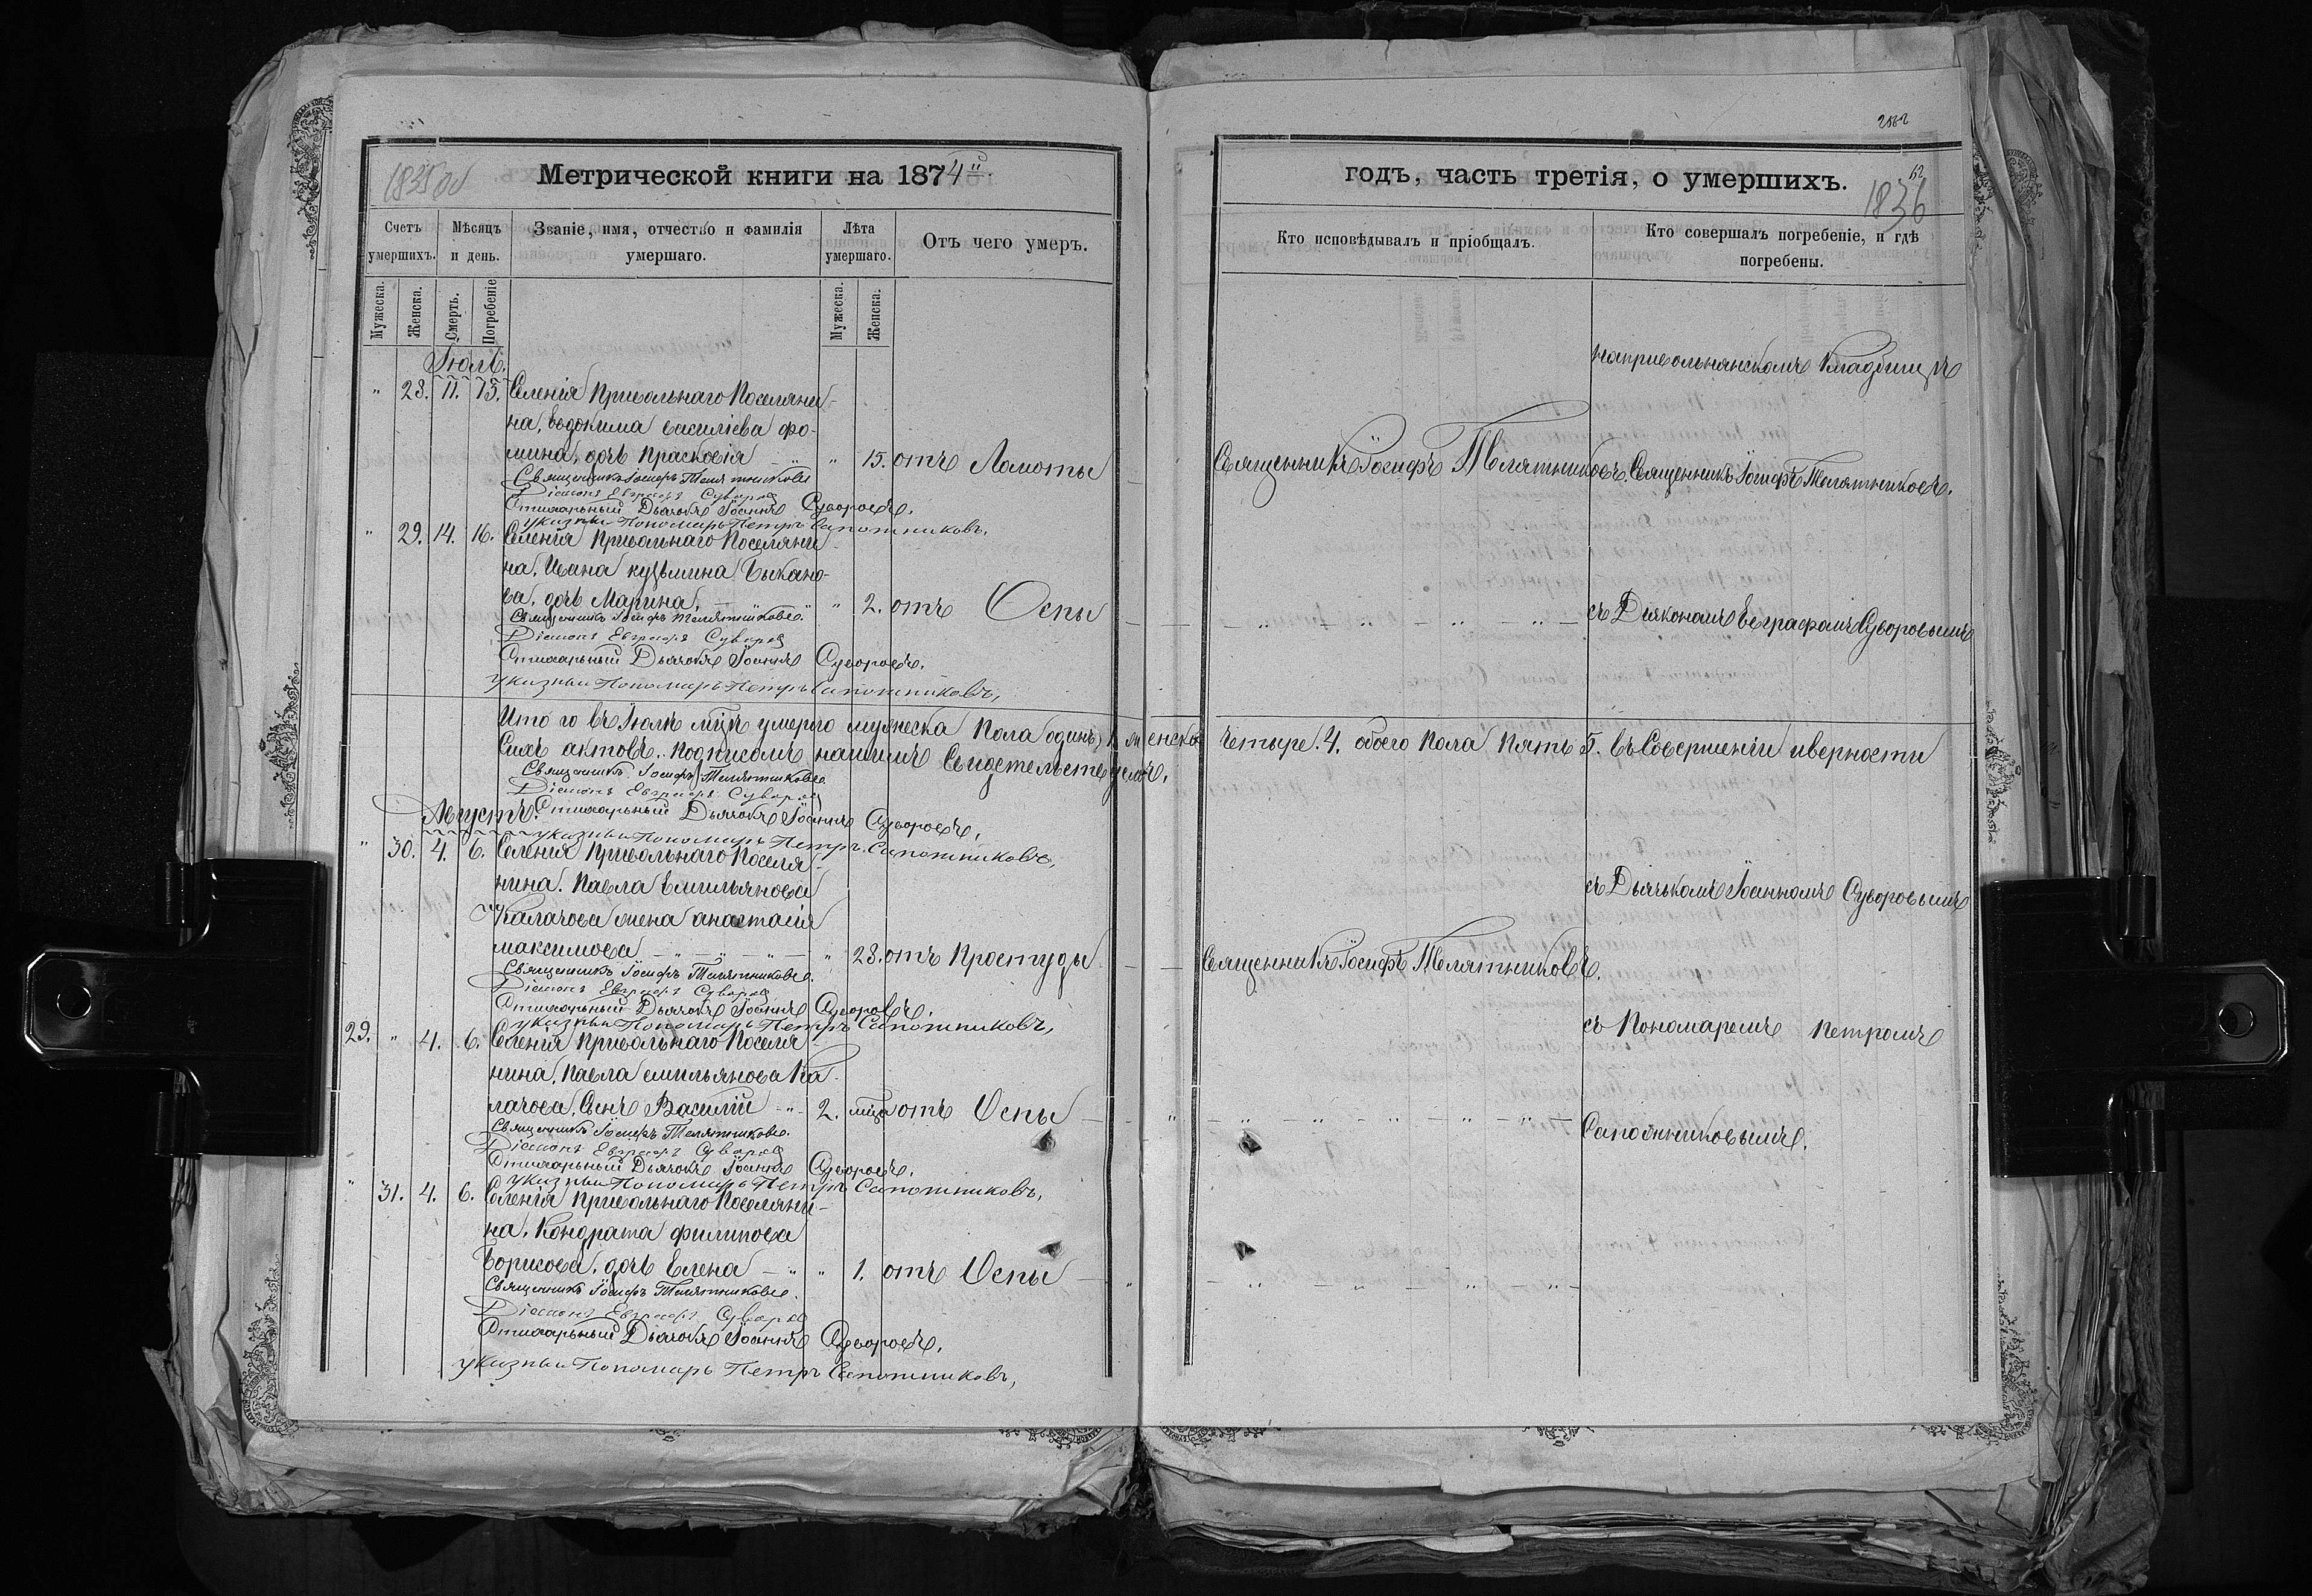 1835 об
Метрической книги на 1874й.
Счетъ умершихъ.
Мѣсяцъ и день.
Званіе, имя, отчество и фамилія умершаго.
Лѣта умершаго.
Отъ чего умеръ.
Мужеска.
Женска.
Смерть.
Погребеніе
Мужеска.
Женска.
Іюль.
" 28. 11. 13. Селенія Привольнаго Поселяни-
на, Евдокима Василіева Фо-
мина, дочь Прасковія " 15. отъ Ломоты
Священникъ Іосифъ Телятниковъ
Діаконъ Евграфъ Суворов
Стихарный Дьячокъ Іоаннъ Суворовъ.
указный Пономарь Петръ Сапожниковъ,
" 29. 14. 16. Селенія Привольнаго Поселяни
на, Ивана Кузьмина Быкано-
ва, дочь Марина, " 2. отъ Оспы
Священникъ Іосифъ Телятниковъ.
Діаконъ Евграфъ Суворов
Стихарный Дьячокъ Іоаннъ Суворовъ.
указный Пономарь Петръ Сапожниковъ,
Итого въ Іюлѣ мцѣ умерло мужеска пола одинъ, 1 женска
Сихъ актовъ. подписомъ нашимъ Свидетельствуемъ.
Священникъ Іосифъ Телятниковъ.
Діаконъ Евграфъ Суворов
Августъ. Стихарный Дьячокъ Іоаннъ Суворовъ,
указный Пономарь Петръ Сапожниковъ,
" 30. 4. 6. Селенія Привольнаго Поселя-
нина. Павла Емильянова
Калачова жена Анастасія
Максимова " 23. отъ Простуды
Священникъ Іосифъ Телятниковъ.
Діаконъ Евграфъ Суворов
Стихарный Дьячокъ Іоаннъ Суворовъ.
указный Пономарь Петръ Сапожниковъ,
29. " 4. 6. Селенія Привольнаго Поселя
нина, Павла Емильянова Ка
лачова, Сынъ Василій 2. мца отъ Оспы
Священникъ Іосифъ Телятниковъ.
Діаконъ Евграфъ Суворов
Стихарный Дьячокъ Іоаннъ Суворовъ.
указный Пономарь Петръ Сапожниковъ,
" 31. 4. 6. Селенія Привольнаго Поселяни-
на, Кондрата Филипова
Борисова, дочь Елена " 1. отъ Оспы
Священникъ Іосифъ Телятниковъ.
Діаконъ Евграфъ Суворов
Стихарный Дьячокъ Іоаннъ Суворовъ.
указный Пономарь Петръ Сапожниковъ,
годъ, часть третія, о умершихъ.
1836
Кто исповѣдывалъ и пріобщалъ.
Кто совершалъ погребеніе, и гдѣ погребены.
на привольнянскомъ Кладбищѣ
Священникъ Іосифъ Телятниковъ. Священникъ Іосифъ Телятниковъ.
съ Дьякономъ Евграфомъ Суворовымъ
четыре. 4. обоего пола пять 5. въ Совершеніи и верности
съ Дьячькомъ Іоанномъ Суворовымъ
Священникъ Іосифъ Телятниковъ.
съ Пономаремъ Петромъ
Сапожниковымъ.